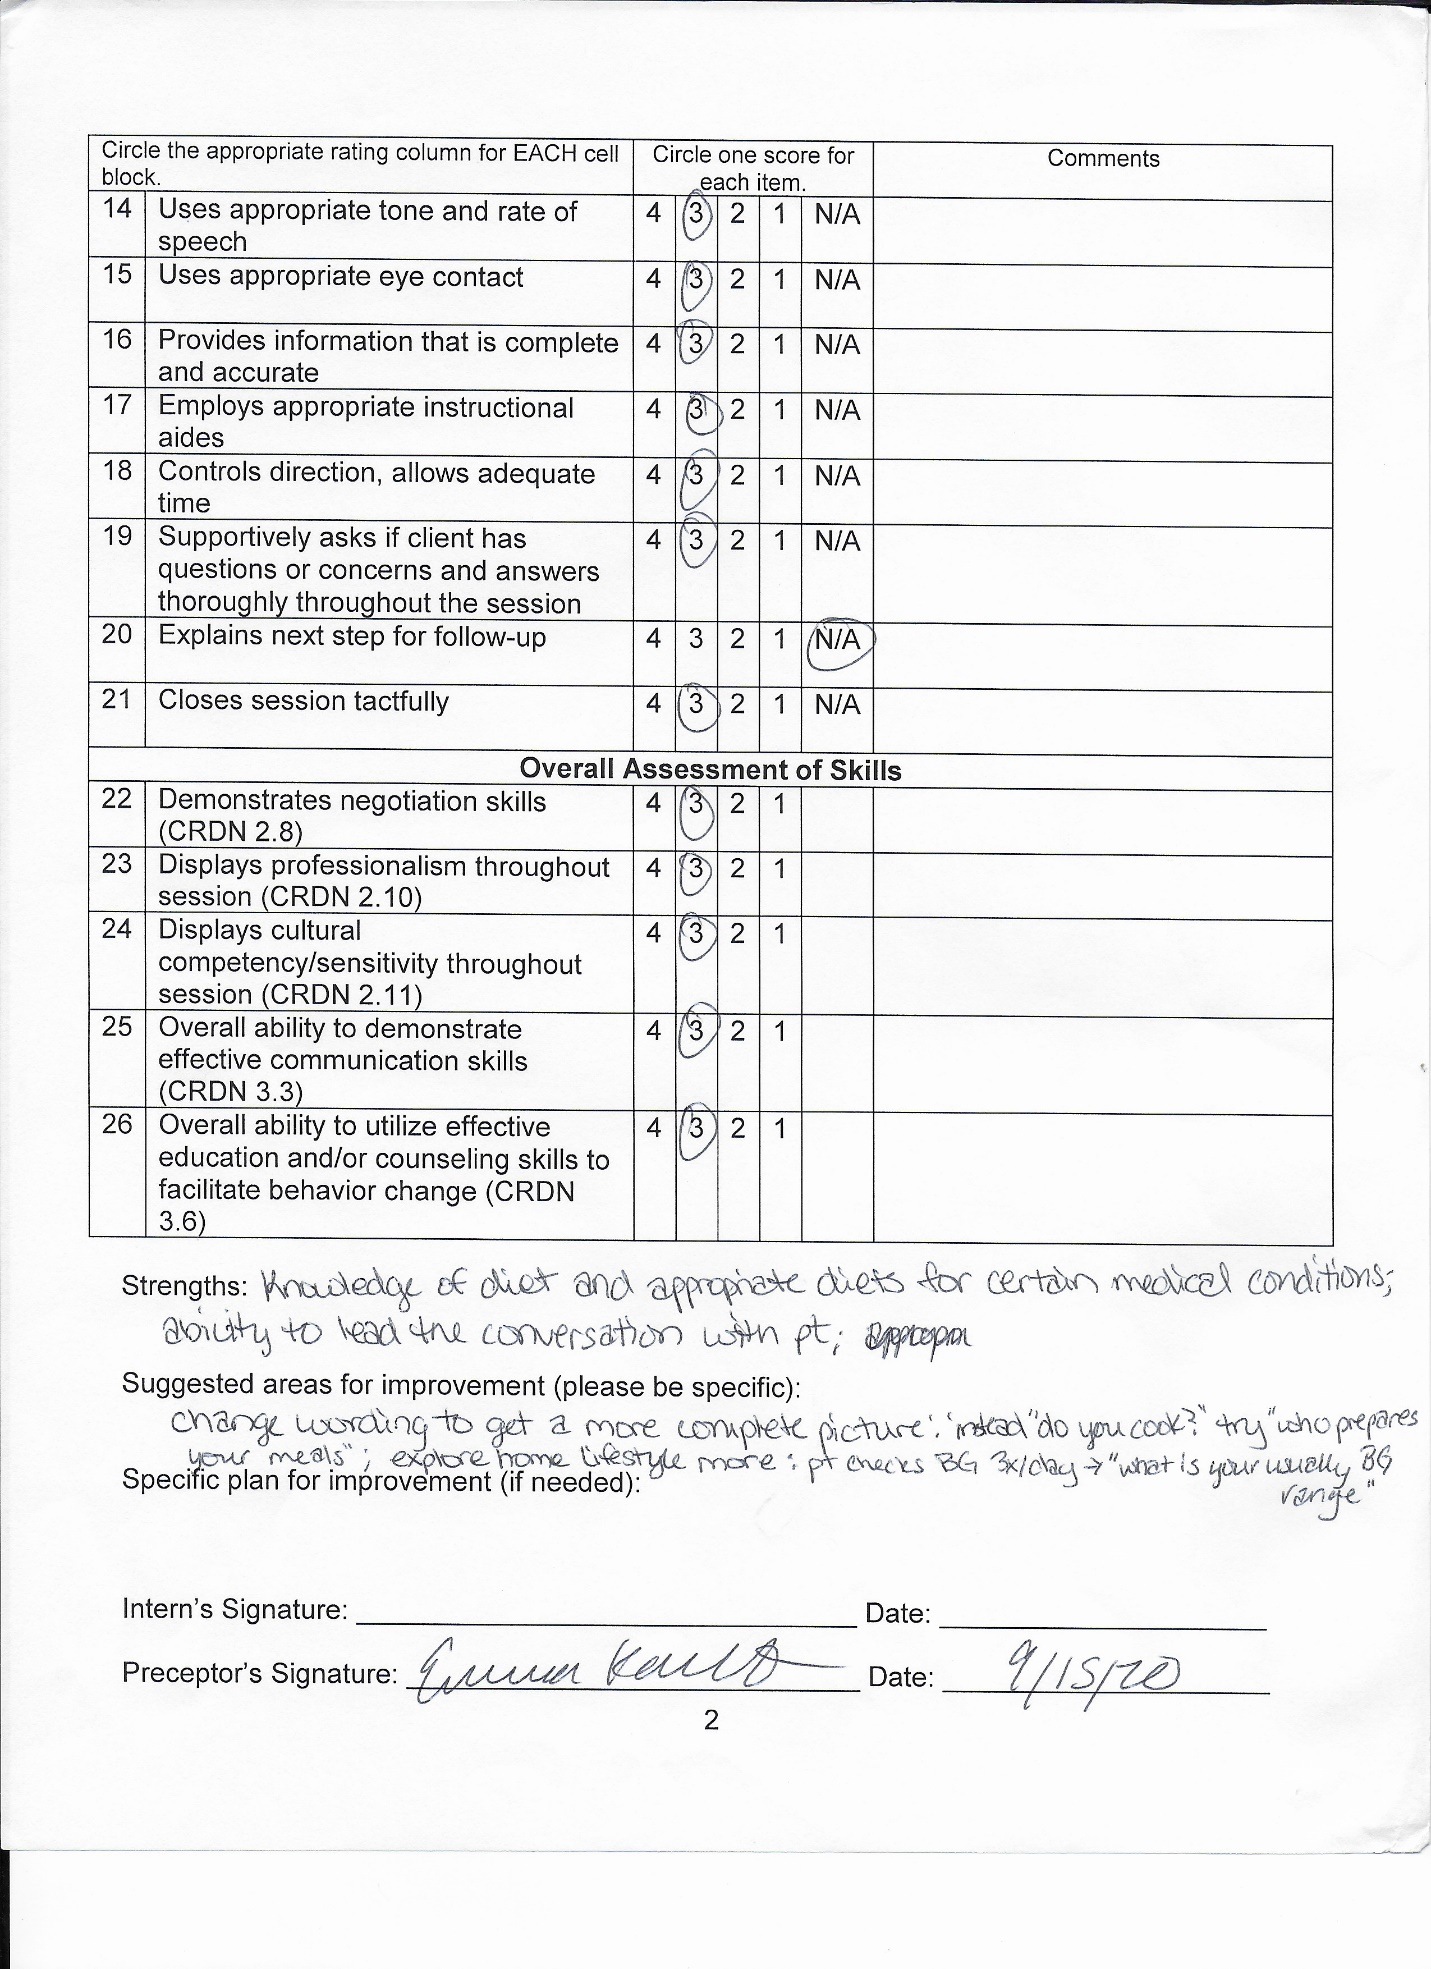 Circle the appropriate rating column for EACH cell
block.
Circle one score for
each item.
Comments
14 Uses appropriate tone and rate of
speech
4 3 2 1 N/A
15 Uses appropriate eye contact
4 3 2 1 N/A
16 Provides information that is complete
and accurate
4 3 2 1 N/A
17 Employs appropriate instructional
aides
4 3 2 1 N/A
18 Controls direction, allows adequate
time
4 3 2 1 N/A
19 Supportively asks if client has
questions or concerns and answers
thoroughly throughout the session
4 3 2 1 N/A
20 Explains next step for follow-up
4 3 2 1 N/A
21 Closes session tactfully
4 3 2 1 N/A
Overall Assessment of Skills
22 Demonstrates negotiation skills
(CRDN 2.8)
4 3 2 1
23 Displays professionalism throughout
session (CRDN 2.10)
4 3 2 1
24 Displays cultural
competency/sensitivity throughout
session (CRDN 2.11)
4 3 2 1
25 Overall ability to demonstrate
effective communication skills
(CRDN 3.3)
4 3 2 1
26 Overall ability to utilize effective
education and/or counseling skills to
facilitate behavior change (CRDN
3.6)
4 3 2 1
Strengths: Knowledge of diet and appropriate diets for certain medical conditions;
ability to lead the conversation with pt;
Suggested areas for improvement (please be specific):
change wording to get a more complete picture: instead "do you cook?" try "who prepares
your meals"; explore home lifestyle more: pt checks BG 3x/day → "what is your usually BG
range"
Specific plan for improvement (if needed):
Intern's Signature: Date:
Preceptor's Signature: Emma Date: 9/15/20
2